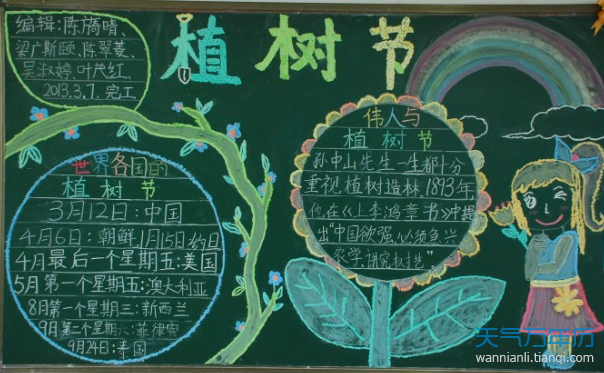 编辑:陈旖晴、
梁广斯颐、陈翠菱、
吴淑婷、叶茂红
2013.3.7.完工
植树节
世界各国的
植树节
3月12日:中国
4月6日:朝鲜 1月15日:约旦
4月最后一个星期五:美国
5月第一个星期五:澳大利亚
8月第一个星期三:新西兰
9月第二个星期六:菲律宾
9月24日:泰国
伟人与
植树节
孙中山先生一生都十分
重视植树造林1893年
他在《上李鸿章书》中提
出"中国欲强,必须急兴
农学,讲究
天气万年历
wannianli.tianqi.com